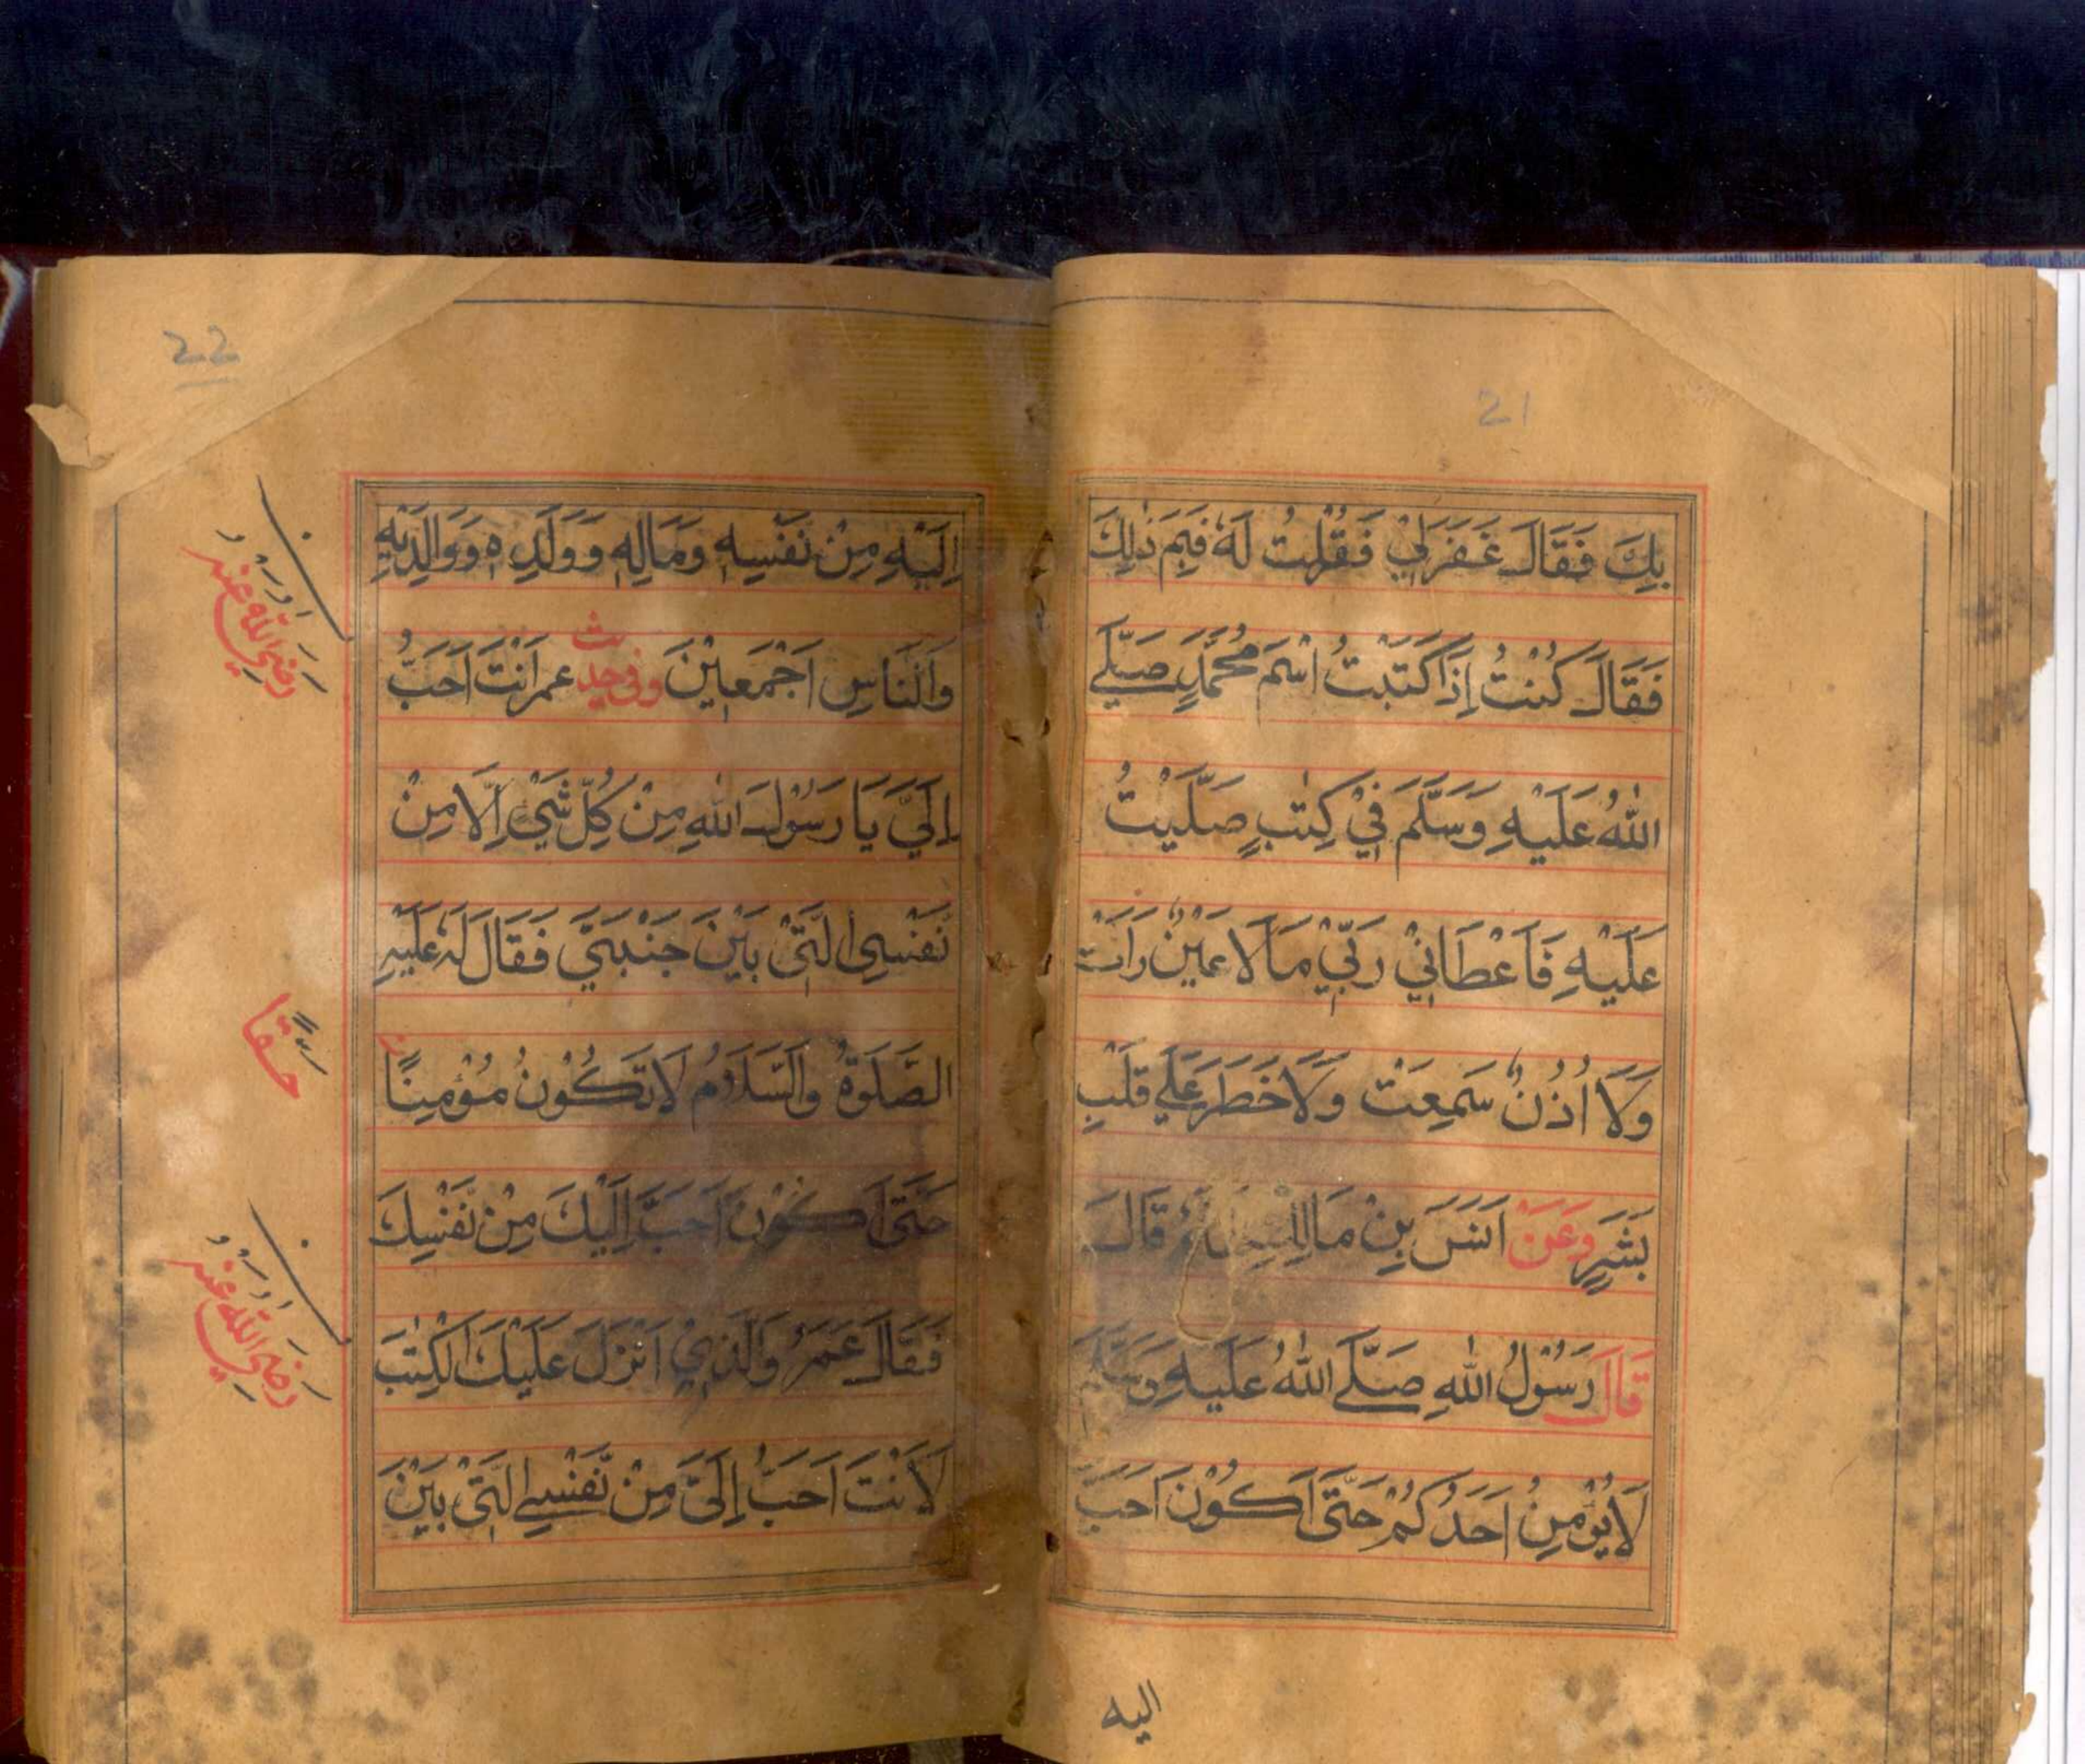 21
بِكَ فَقَالَ غَفَرَ لِيْ فَقُلْتُ لَهٗ فَبِمَ ذٰلِكَ
فَقَالَ كُنْتُ اِذَا كَتَبْتُ اسْمَ مُحَمَّدٍ صَلَّے
اللّٰهُ عَلَيْهِ وَسَلَّمَ فِيْ كِتٰبٍ صَلَّيْتُ
عَلَيْهِ فَاَعْطَانِيْ رَبِّيْ مَا لَا عَيْنٌ رَاَتْ
وَلَا اُذُنٌ سَمِعَتْ وَلَا خَطَرَ عَلٰي قَلْبِ
بَشَرٍ وَعَنْ اَنَسَ بِنْ مَالِكٍ قَالَ
قَالَ رَسُوْلُ اللّٰهِ صَلَّے اللّٰهُ عَلَيْهِ وَسَلَّمَ
لَا يُؤْمِنُ اَحَدُكُمْ حَتّٰى اَكُوْنَ اَحَبَّ
اليه
22
اِلَيْهِ مِنْ نَفْسِهٖ وَمَالِهٖ وَوَلَدِهٖ وَوَالِدَيْهِ
وَالنَّاسِ اَجْمَعِيْنَ وفي حديث عمر اَنْتَ اَحَبُّ
رَضِيَ اللّٰهُ عَنْهُ
اِلَيَّ يَا رَسُوْلَ اللّٰهِ مِنْ كُلِّ شَيْءٍ اِلَّا مِنْ
نَفْسِيْ الَّتِيْ بَيْنَ جَنْبَيَّ فَقَالَ لَهٗ عَلَيْهِ
الصَّلٰوةُ وَالسَّلَامُ لَا تَكُوْنُ مُؤْمِنًا
حَقًّا
حَتّٰى اَكُوْنَ اَحَبَّ اِلَيْكَ مِنْ نَفْسِكَ
فَقَالَ عُمَرُ وَالَّذِيْ اَنْزَلَ عَلَيْكَ الْكِتٰبَ
رَضِيَ اللّٰهُ عَنْهُ
لَاَنْتَ اَحَبُّ اِلَيَّ مِنْ نَّفْسِے الَّتِيْ بَيْنَ